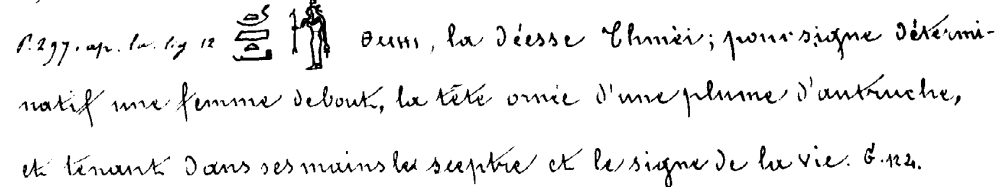 P. 297. ap. la. lig 12 ⲑⲙⲏⲓ, la Déesse Thméi; pour signe détermi-
natif une femme debout, la tête ornée d'une plume d'autruche,
et tenant dans ses mains le sceptre et le signe de la vie. G. 122.